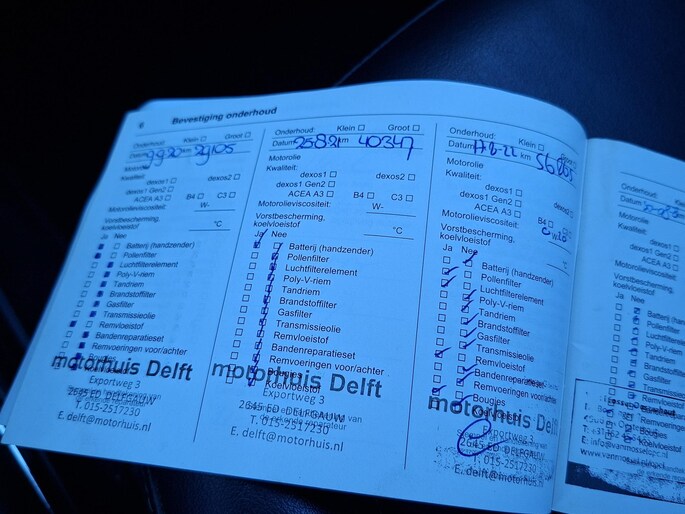 6 Bevestiging onderhoud
Onderhoud: Klein Groot
Datum 29105
Motorolie
Kwaliteit:
dexos1 dexos2
dexos1 Gen2
ACEA A3 B4 C3
Motorolieviscositeit: W-
Vorstbescherming, koelvloeistof °C
Ja Nee
Batterij (handzender)
Pollenfilter
Luchtfilterelement
Poly-V-riem
Tandriem
Brandstoffilter
Gasfilter
Transmissieolie
Remvloeistof
Bandenreparatieset
Remvoeringen voor/achter
motorhuis Delft
Exportweg 3
2645 ED DELFGAUW
T. 015-2517230
E. delft@motorhuis.nl
Onderhoud: Klein Groot
Datum 25-8-21 km 40347
Motorolie
Kwaliteit:
dexos1 dexos2
dexos1 Gen2
ACEA A3 B4 C3
Motorolieviscositeit: W-
Vorstbescherming,
koelvloeistof °C
Ja Nee
Batterij (handzender)
Pollenfilter
Luchtfilterelement
Poly-V-riem
Tandriem
Brandstoffilter
Gasfilter
Transmissieolie
Remvloeistof
Bandenreparatieset
Remvoeringen voor/achter
Bougies
Koelvloeistof
motorhuis Delft
Exportweg 3
2645 ED DELFGAUW
T. 015-2517230
E. delft@motorhuis.nl
Onderhoud: Klein Groot
Datum km
Motorolie
Kwaliteit:
dexos1 dexos2
dexos1 Gen2
ACEA A3 B4
Motorolieviscositeit:
Vorstbescherming,
koelvloeistof °C
Ja Nee
Batterij (handzender)
Pollenfilter
Luchtfilterelement
Poly-V-riem
Tandriem
Brandstoffilter
Gasfilter
Transmissieolie
Remvloeistof
Bandenreparatieset
Remvoeringen voor/achter
Bougies
Koelvloeistof
motorhuis Delft
Exportweg 3
2645 ED DELFGAUW
T. 015-2517230
E. delft@motorhuis.nl
Onderhoud: Klein
Datum
Motorolie
Kwaliteit:
dexos1
dexos1 Gen2
ACEA A3
Motorolieviscositeit:
Vorstbescherming,
koelvloeistof
Ja Nee
Batterij (handzender)
Pollenfilter
Luchtfilterelement
Poly-V-riem
Tandriem
Brandstoffilter
Gasfilter
Transmissieolie
Remvloeistof
Bougies
Koelvloeistof